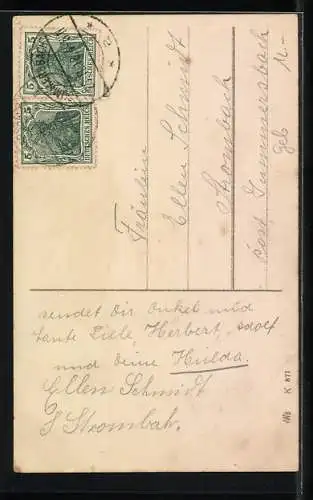 5 5
DEUTSCHES REICH
5 5
DEUTSCHES REICH
Fräulein
Ellen Schmidt
Strombach
post Gummersbach
Geb
sendet Dir Onkel und
tante Ziele, Herbert, Adolf
und deine Hulda.
Ellen Schmidt
Strombah.
K 871